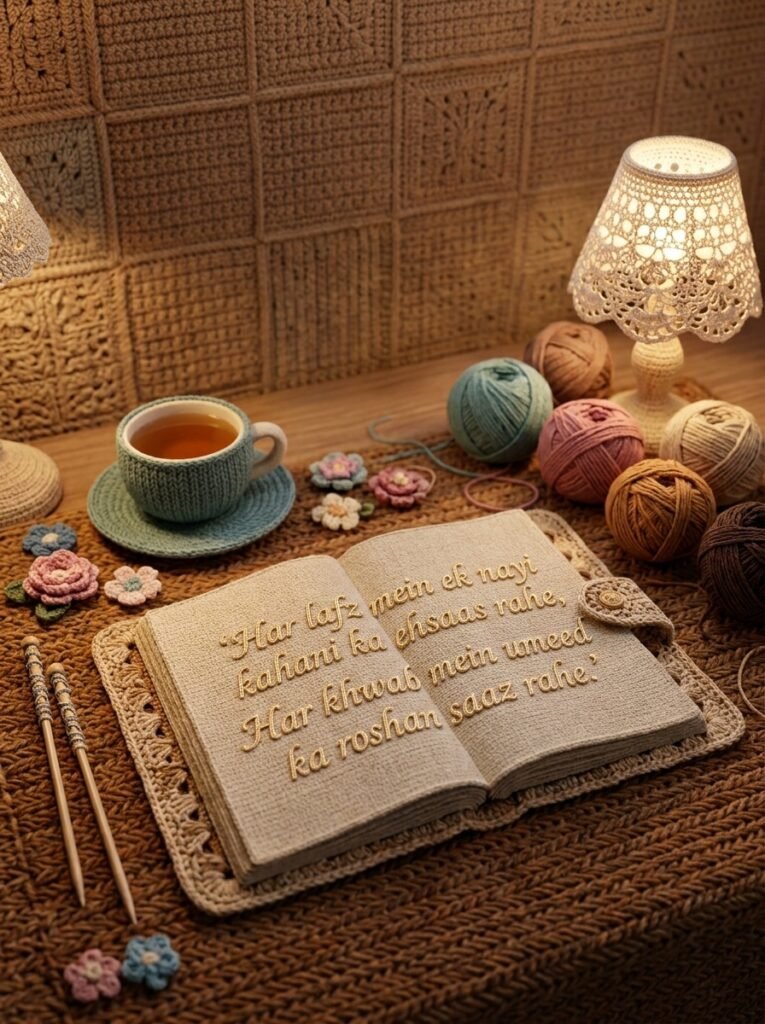 ‘Har lafz mein ek nayi
kahani ka ehsaas rahe,
Har khwab mein umeed
ka roshan saaz rahe.’